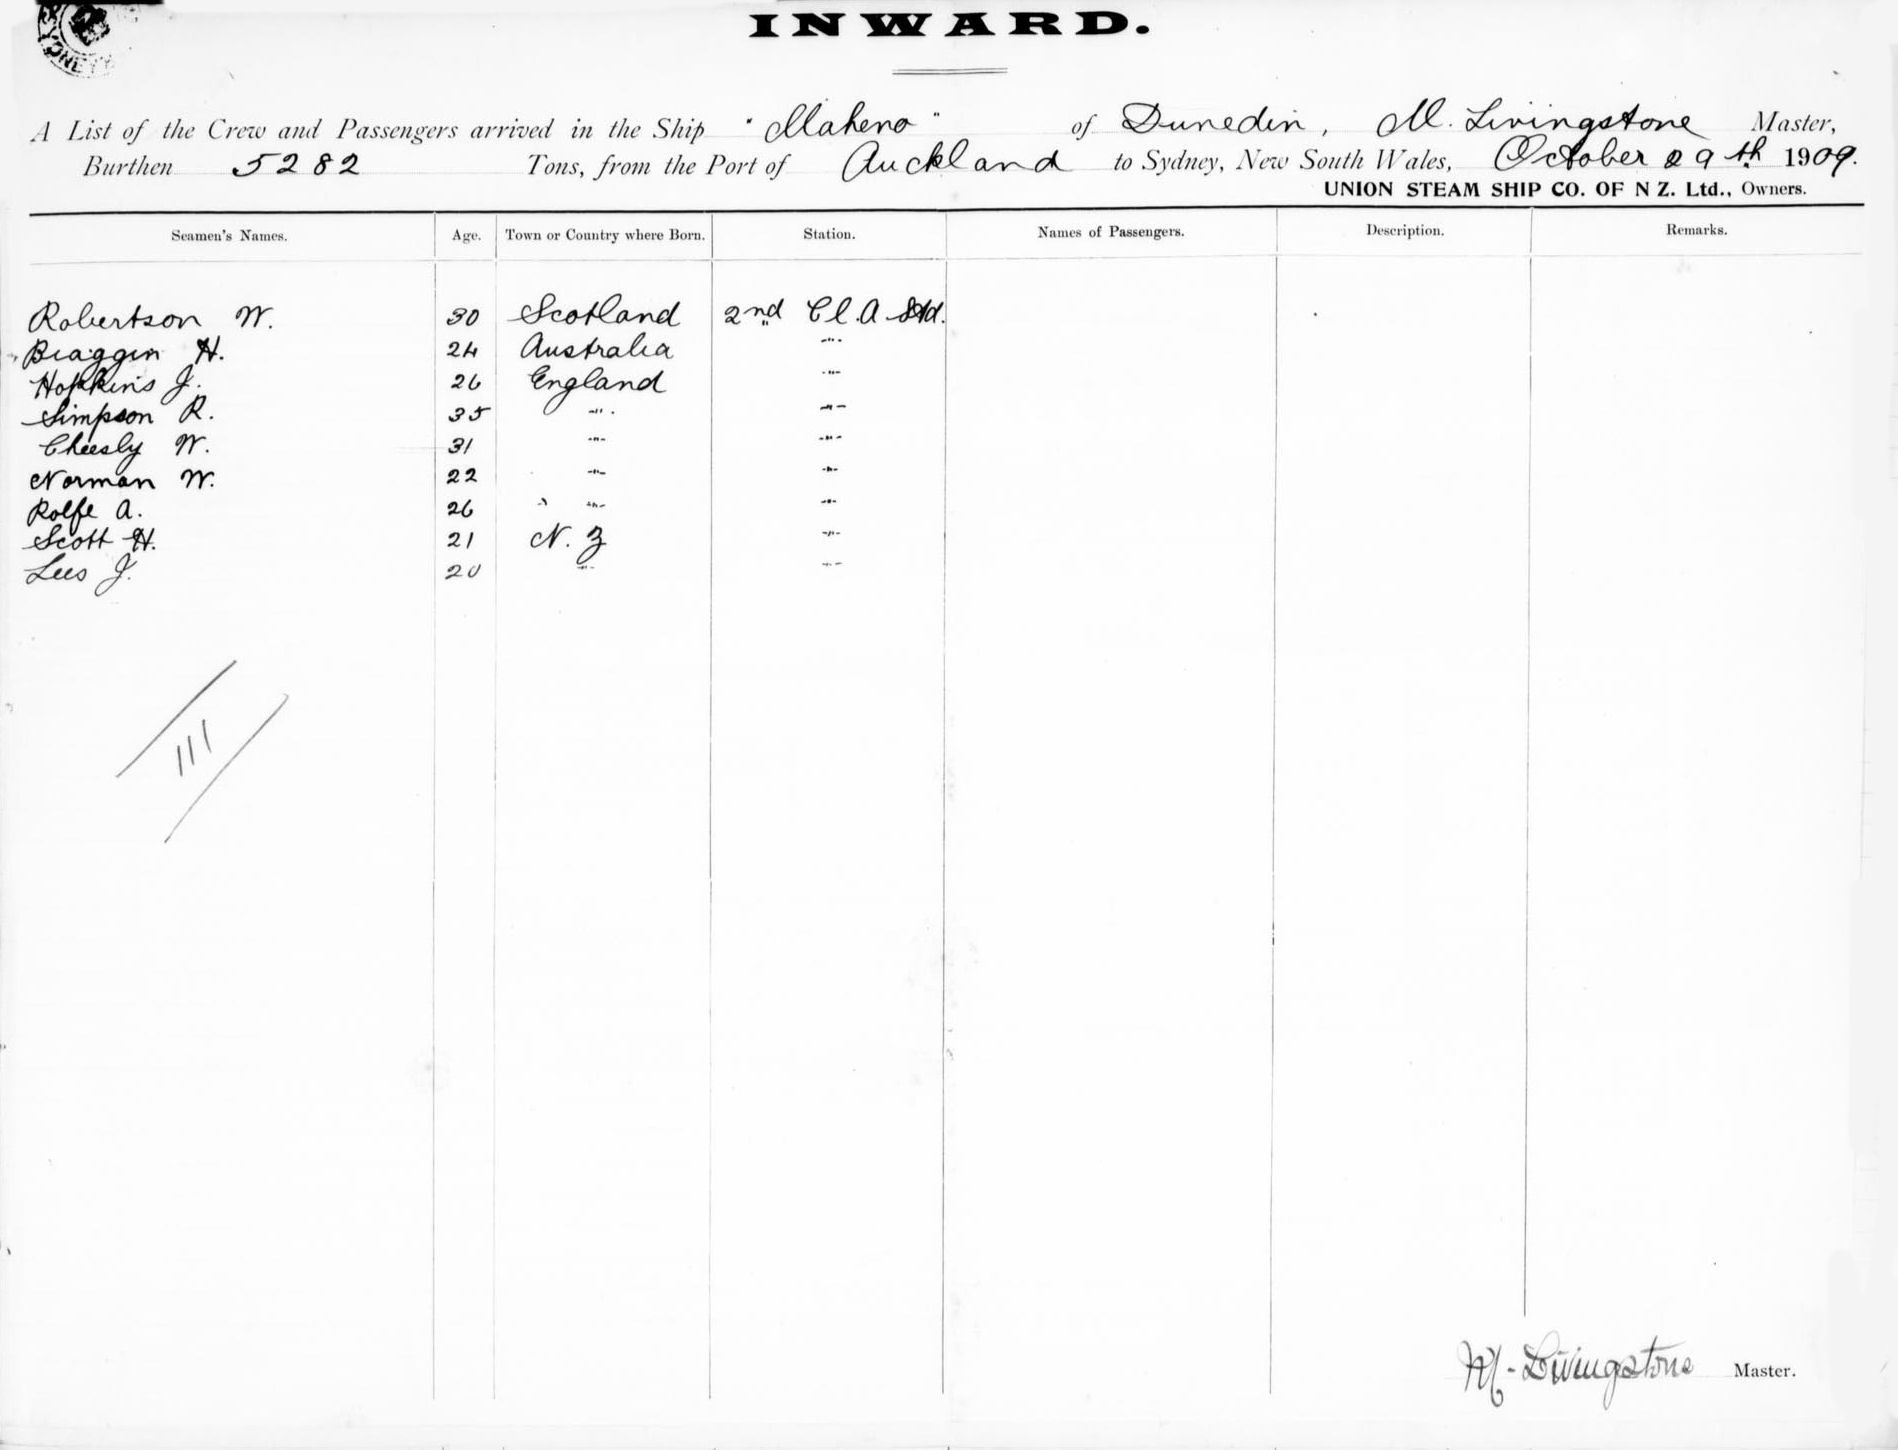 INWARD.
A List of the Crew and Passengers arrived in the Ship "Maheno" of Dunedin, M. Livingstone Master,
Burthen 5282 Tons, from the Port of Auckland to Sydney, New South Wales, October 29th 1909.
UNION STEAM SHIP CO. OF N Z. Ltd., Owners.
Seamen's Names. Age. Town or Country where Born. Station. Names of Passengers. Description. Remarks.
Robertson W. 30 Scotland 2nd Cl. A Std.
H. 24 Australia -"-
Hopkins J. 26 England -"-
Simpson R. 35 -"- -"-
Cheesly W. 31 -"- -"-
Norman W. 22 -"- -"-
Rolfe A. 26 -"- -"-
Scott H. 21 N. Z -"-
Lees J. 20 -"- -"-
111
M. Livingstone Master.